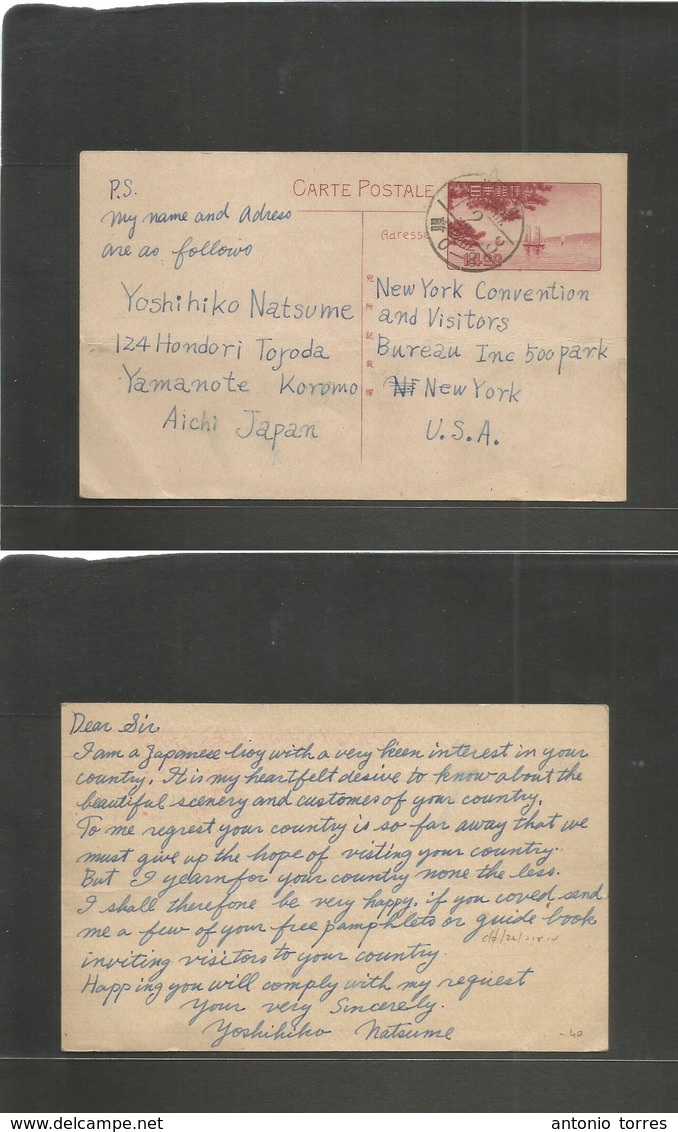 P.S.
my name and Adress
are as follows
Yoshihiko Natsume
124 Hondori Toyoda
Yamanote Koromo
Aichi Japan
CARTE POSTALE
Adresse
日本郵便
宛所記載欄
New York Convention
and Visitors
Bureau Inc 500 park
New York
U.S.A.
Dear Sir
I am a Japanese boy with a very keen interest in your
country. It is my heartfelt desire to know about the
beautiful scenery and customes of your country.
To me regrest your country is so far away that we
must give up the hope of visting your country.
But I yearn for your country none the less.
I shall therefone be very happy. if you coved send
me a few of your free pamphlets or guide book
inviting visitors to your country.
Happing you will comply with my request
Your very Sincerely.
Yoshihiko Natsume
-40
antonio torres